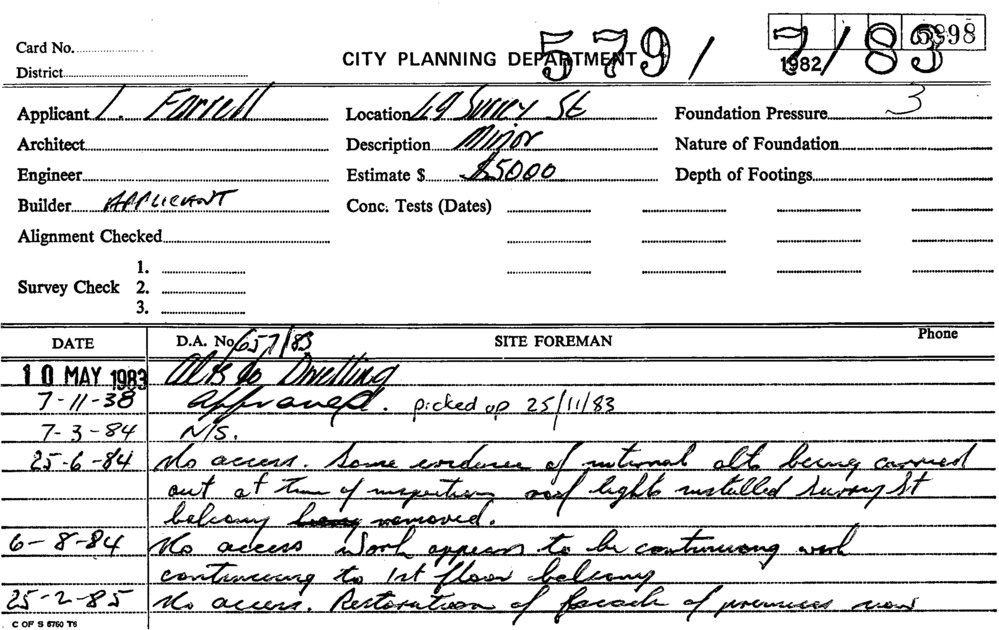 Card No.
CITY PLANNING DEPARTMENT
579/7/83
1982
District
Applicant L. Farrell
Location 69 Surrey St
Foundation Pressure 3
Architect
Description Minor
Nature of Foundation
Engineer
Estimate $ $5000
Depth of Footings
Builder APPLICANT
Conc. Tests (Dates)
Alignment Checked
1.
Survey Check 2.
3.
DATE D.A. No 657/83 SITE FOREMAN Phone
10 MAY 1983 Alts to Dwelling
7-11-38 approved. picked up 25/11/83
7-3-84 N/S.
25-6-84 No access. Some evidence of internal alts being carried
out at time of inspection roof lights installed Surrey St
balcony being removed.
6-8-84 No access Work appears to be continuing work
continuing to 1st floor balcony
25-2-85 No access. Restoration of facade of premises now
C OF S 6760 T6